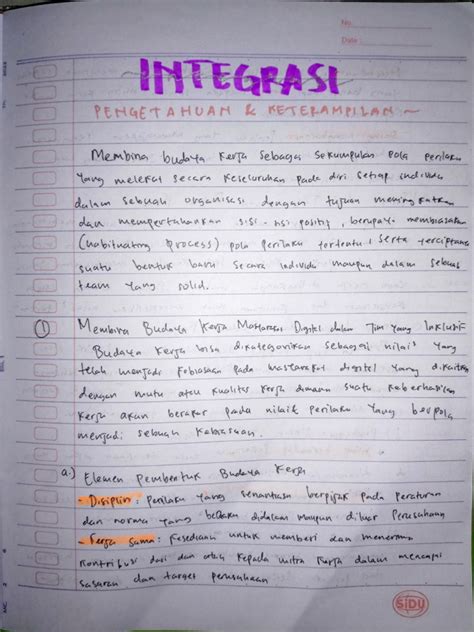 No.
Date:
INTEGRASI
PENGETAHUAN & KETERAMPILAN
Membina budaya kerja sebagai sekumpulan pola perilaku
yang melekat secara keseluruhan pada diri setiap individu
dalam sebuah organisasi dengan tujuan meningkatkan
dan mempertahankan sisi-sisi positif, berupaya membiasakan
(habituating process) pola perilaku tertentu, serta terciptanya
suatu bentuk baru secara individu maupun dalam sebuah
team yang solid.
① Membina Budaya Kerja Masyarakat Digital dalam Tim yang Inklusif
Budaya kerja bisa dikategorikan sebagai nilai² yang
telah menjadi kebiasaan pada masyarakat digital yang dikaitkan
dengan mutu atau kualitas kerja dimana suatu keberhasilan
kerja akan berakar pada nilai² perilaku yang berpola
menjadi sebuah kebiasaan.
a.) Elemen Pembentuk Budaya Kerja
- Disiplin: Perilaku yang senantiasa berpijak pada peraturan
dan norma yang berlaku didalam maupun diluar perusahaan
- Kerja sama: Kesediaan untuk memberi dan menerima
kontribusi dari dan atau kepada mitra kerja dalam mencapai
sasaran dan target perusahaan
SIDU